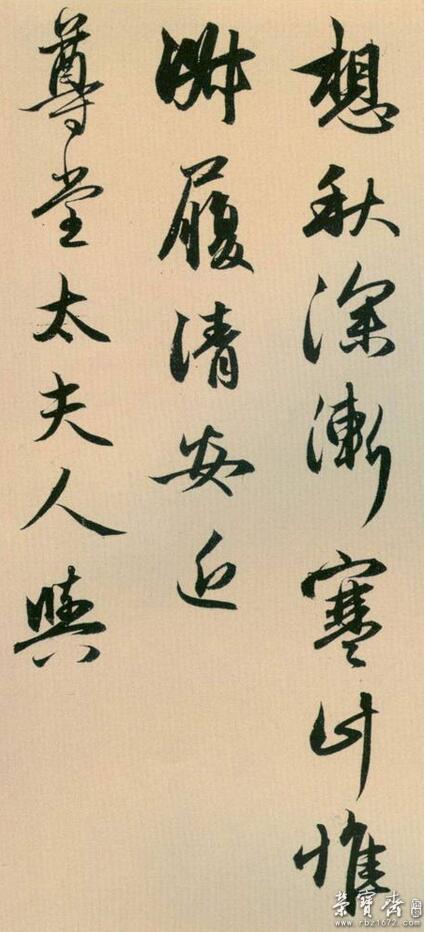 想秋深漸寒計惟
淑履清安近
尊堂太夫人與
荣宝斋
www.rbz1672.com